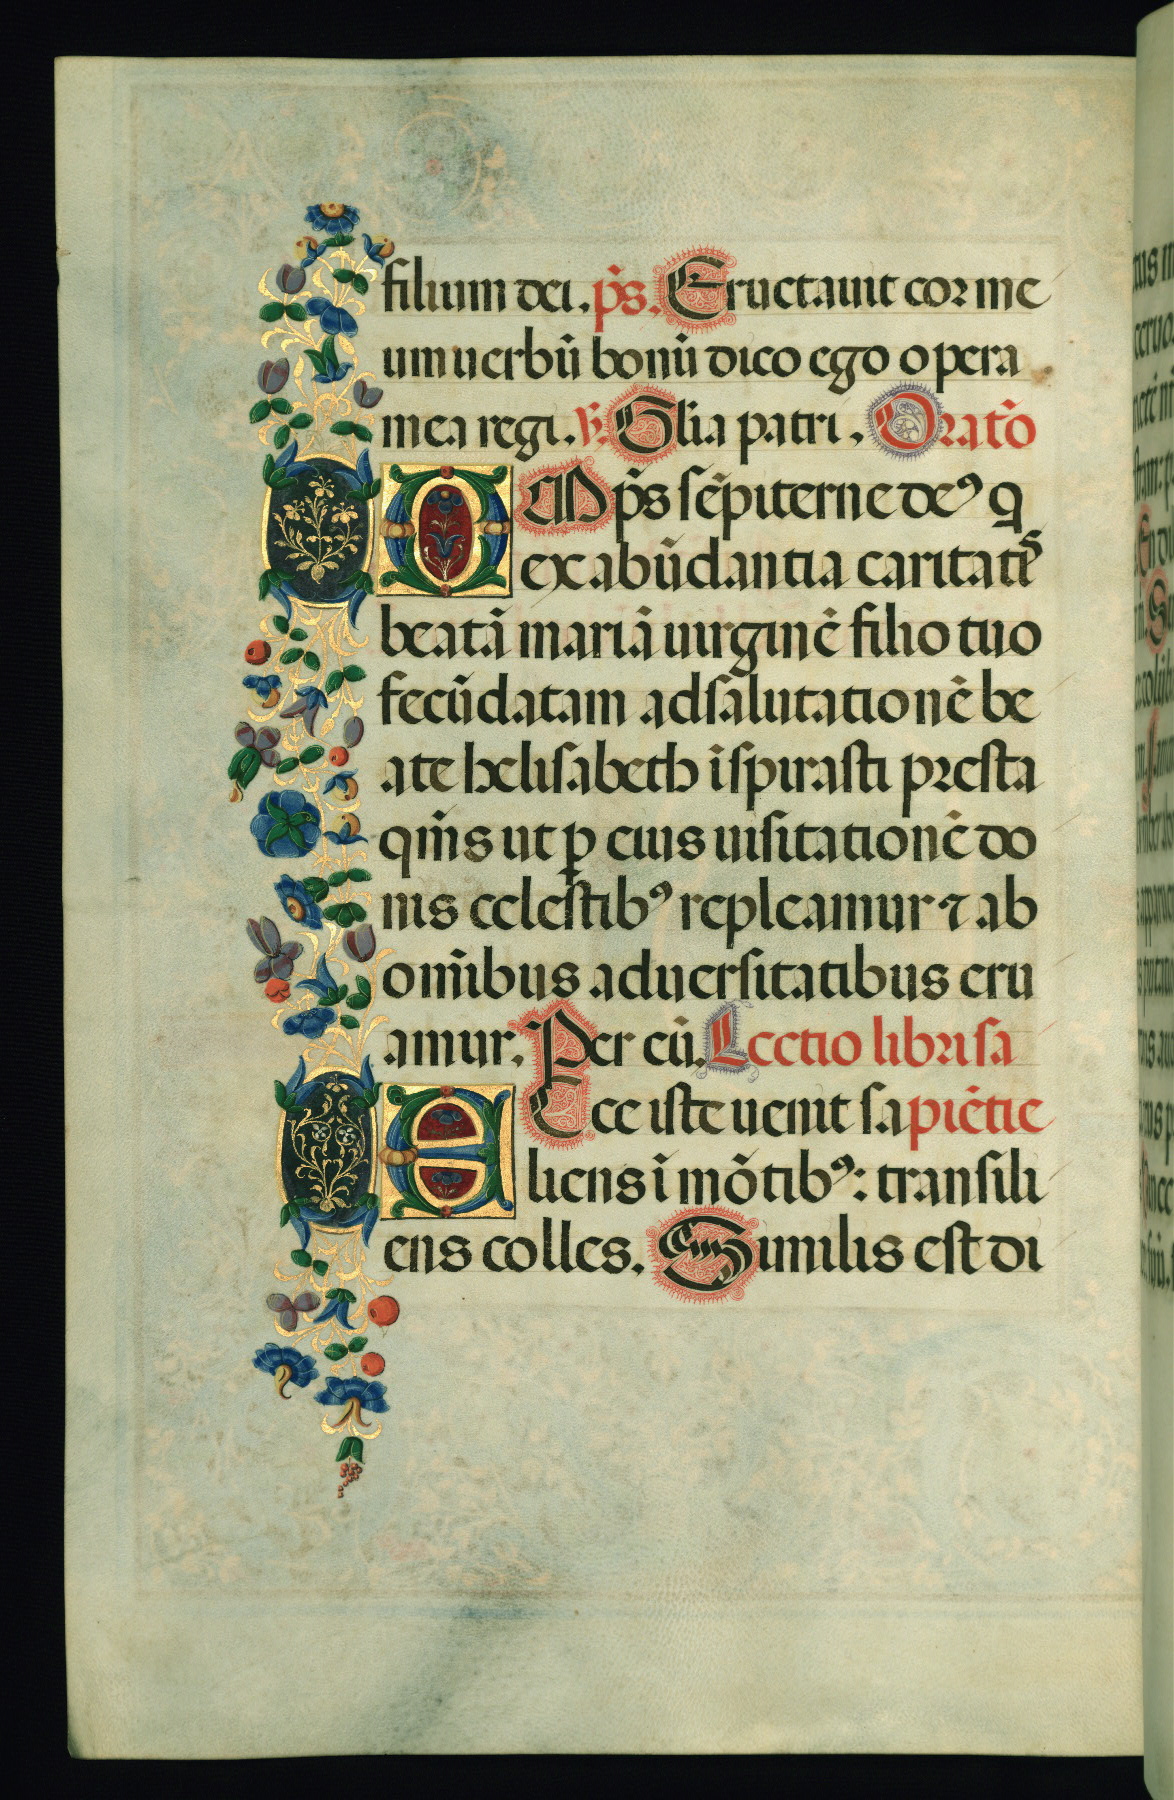 filium dei. p̃s. Eructauit cor me
um uerbũ bonũ dico ego opera
mea regi. ℣. Gl̃ia patri. Orat̃o
OMp̃s sẽpiterne deꝰ q
ex abũdantia caritatis
beatã mariã uirginẽ filio tuo
fecũdatam ad salutationẽ be
ate helisabeth ĩspirasti presta
qm̃s ut ꝑ eius uisitationẽ do
nis celestibꝰ repleamur ⁊ ab
om̃ibus aduersitatibus eru
amur. Per eũ. Lectio libri sa
Ecce iste uenit sapiẽtie
liens ĩ mõtibꝰ: transili
ens colles. Similis est di